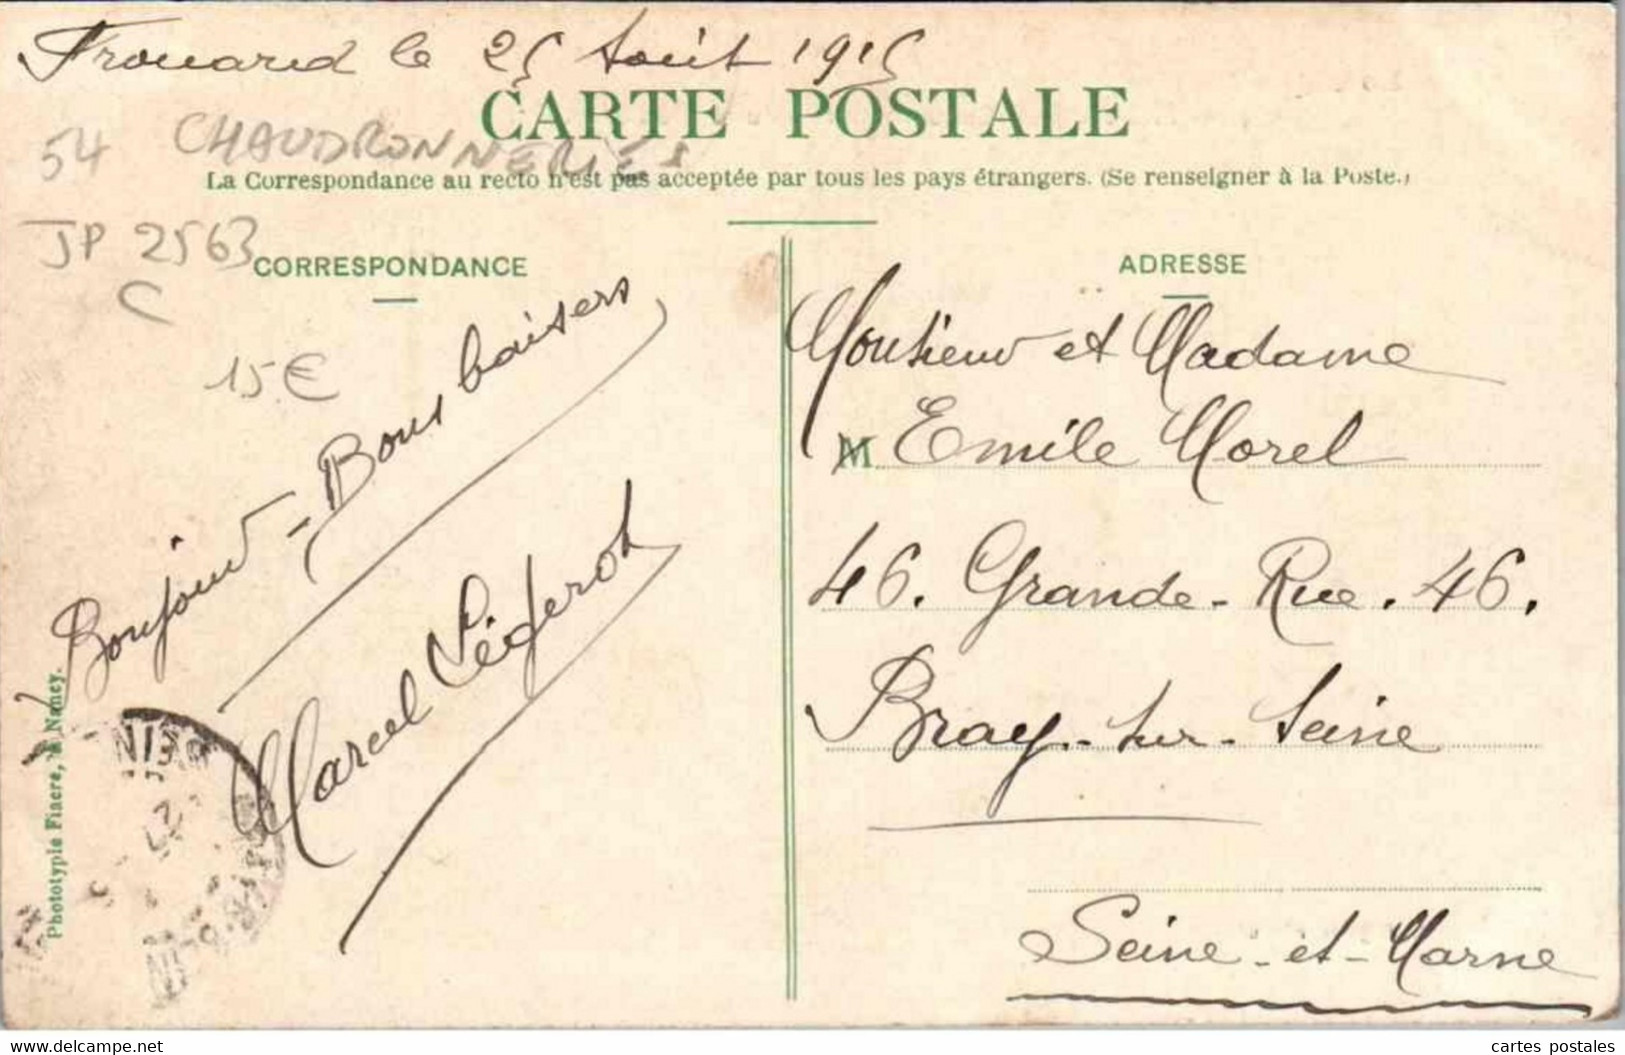 Frouard le 25 Août 1915
CARTE POSTALE
54 CHAUDRONNERIES
La Correspondance au recto n'est pas acceptée par tous les pays étrangers. (Se renseigner à la Poste.)
JP 2563
C
15€
CORRESPONDANCE
Bonjour - Bons baisers
Marcel
Phototypie Fiacre, à Nancy.
ADRESSE
Monsieur et Madame
M Emile Morel
46. Grande-Rue. 46.
Bray-sur-Seine
Seine-et-Marne
www.delcampe.net
cartes postales